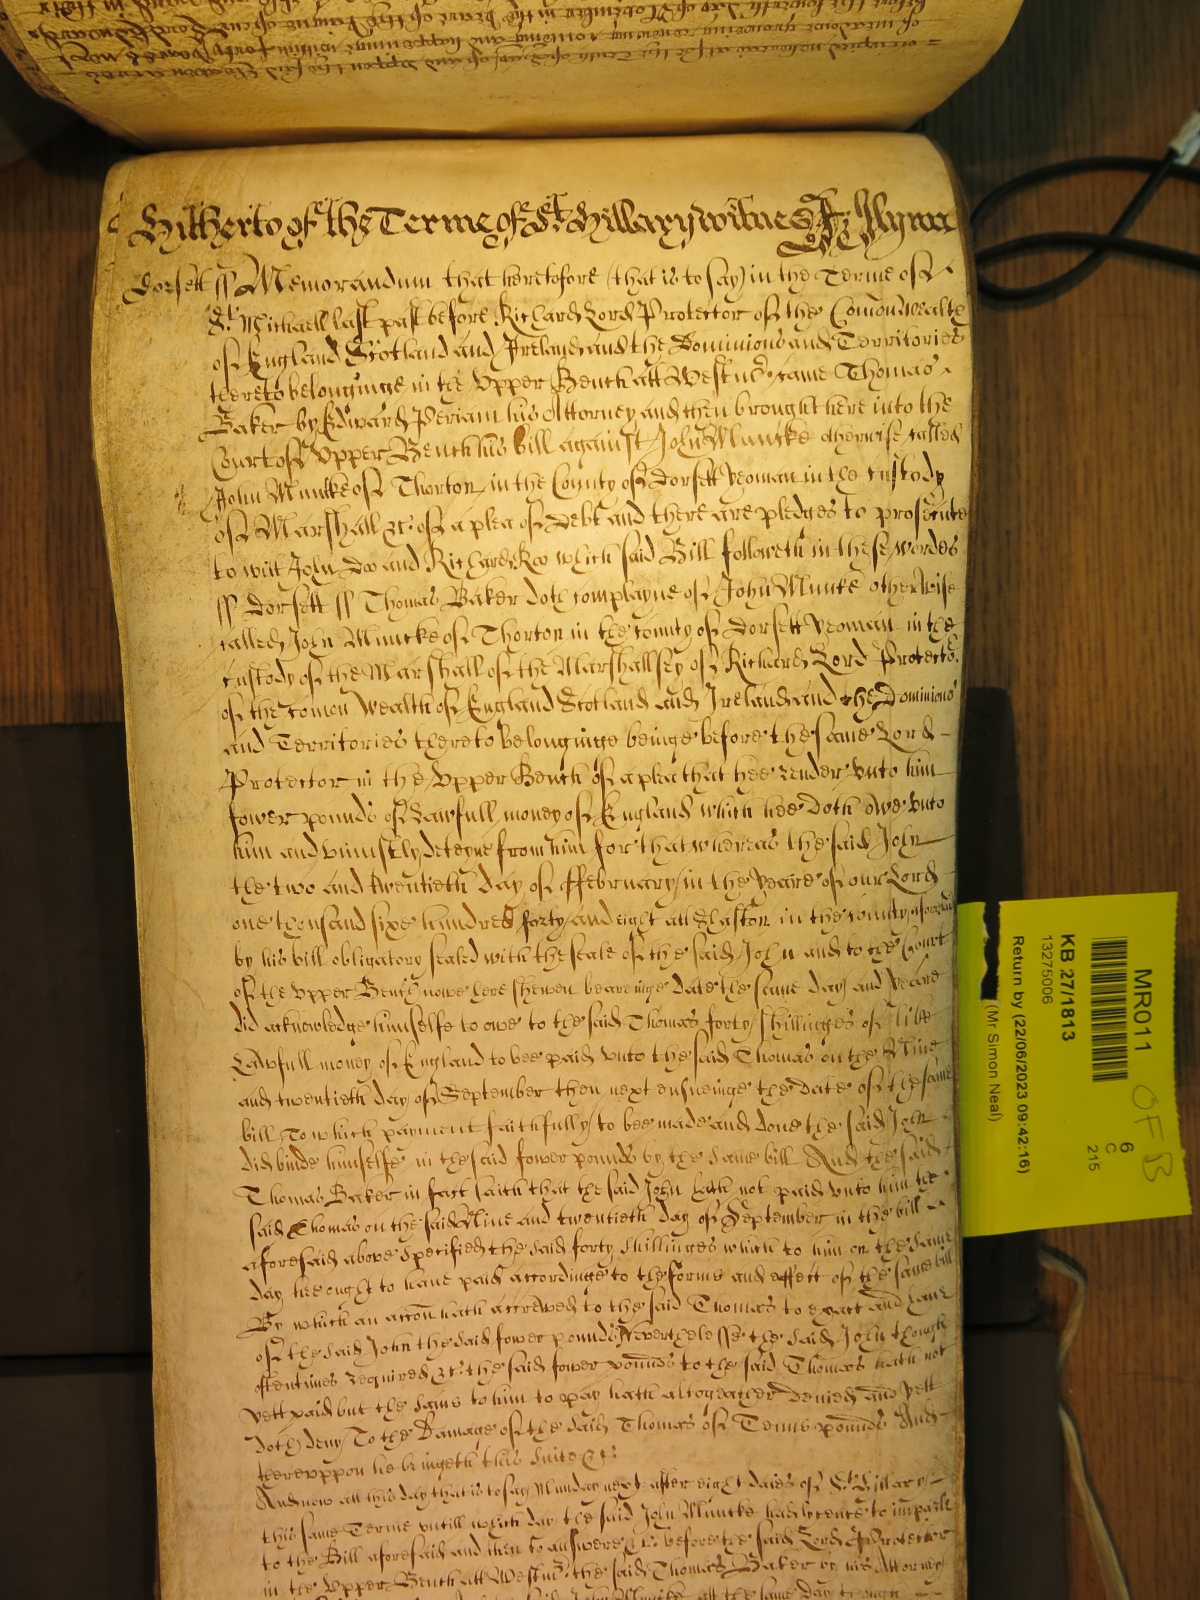 Hitherto of the Terme of St. Hillary witnes
Dorsett ss Memorandum that heretofore (that is to say) in the Terme of
St. Michaell last past before Richard Lord Protector of the Comonwealth
of England Scotland and Ireland and the Dominions and Territories
thereto belonginge in the Upper Bench att Westmr. came Thomas
Baker by Edward Periam his Attorney and then brought here into the
Court of Upper Bench his bill against John Muncke otherwise called
John Muncke of Thorton in the County of Dorsett yeoman in the custody
of Marshall &c. of a plea of Debt and there are pledges to prosecute
to witt John Doo and Richard Roo which said Bill followeth in these wordes
ss Dorsett ss Thomas Baker doth complayne of John Muncke otherwise
called John Muncke of Thorton in the county of Dorsett yeoman in the
custody of the Marshall of the Marshallsey of Richard Lord Protector
of the comon wealth of England Scotland and Ireland and the Dominions
and Territories thereto belonginge beinge before the same Lord
Protector in the Upper Bench of a plea that hee render unto him
fower pounds of lawfull money of England which hee doth owe unto
him and uniustly deteyne from him for that whereas the said John
the two and twentieth day of ffebruary in the yeare of our Lord
one thousand sixe hundred forty and eight att in the county aforesaid
by his bill obligatory sealed with the seale of the said John and to the Court
of the Upper Bench nowe here shewen bearinge date the same day and yeare
did acknowledge himselfe to owe to the said Thomas forty shillinges of like
Lawfull money of England to bee paid unto the said Thomas on the Nine
and twentieth day of September then next ensueinge the date of the same
bill To which payment faithfully to bee made and done the said John
did binde himselfe in the said fower pounds by the same bill And the said
Thomas Baker in fact saith that the said John hath not paid unto him the
said Thomas on the said Nine and twentieth day of September in the bill
aforesaid above specified the said forty shillinges which to him on the same
day hee ought to have paid accordinge to the forme and effect of the same bill
By which an accon hath accrewed to the said Thomas to exact and have
of the said John the said fower pounds Neverthelesse the said John though
oftentimes required &c. the said fower pounds to the said Thomas hath not
yett paid but the same to him to pay hath altogeather denied and yett
doth deny To the Damage of the said Thomas of Tenne pounds And
thereuppon he bringeth this suite &c.
And now att this day that is to say Munday next after eight daies of St. Hillary
this same Terme untill which day the said John Muncke had lycence to imparle
to the Bill aforesaid and then to answere &c. before the said Lord Protector
in the Upper Bench att Westmr. the said Thomas Baker by his Attorney
said John Muncke att the same day though
MR011
6
C
215
KB 27/1813
13275006
(Mr Simon Neal)
Return by (22/06/2023 09:42:16)
OFB